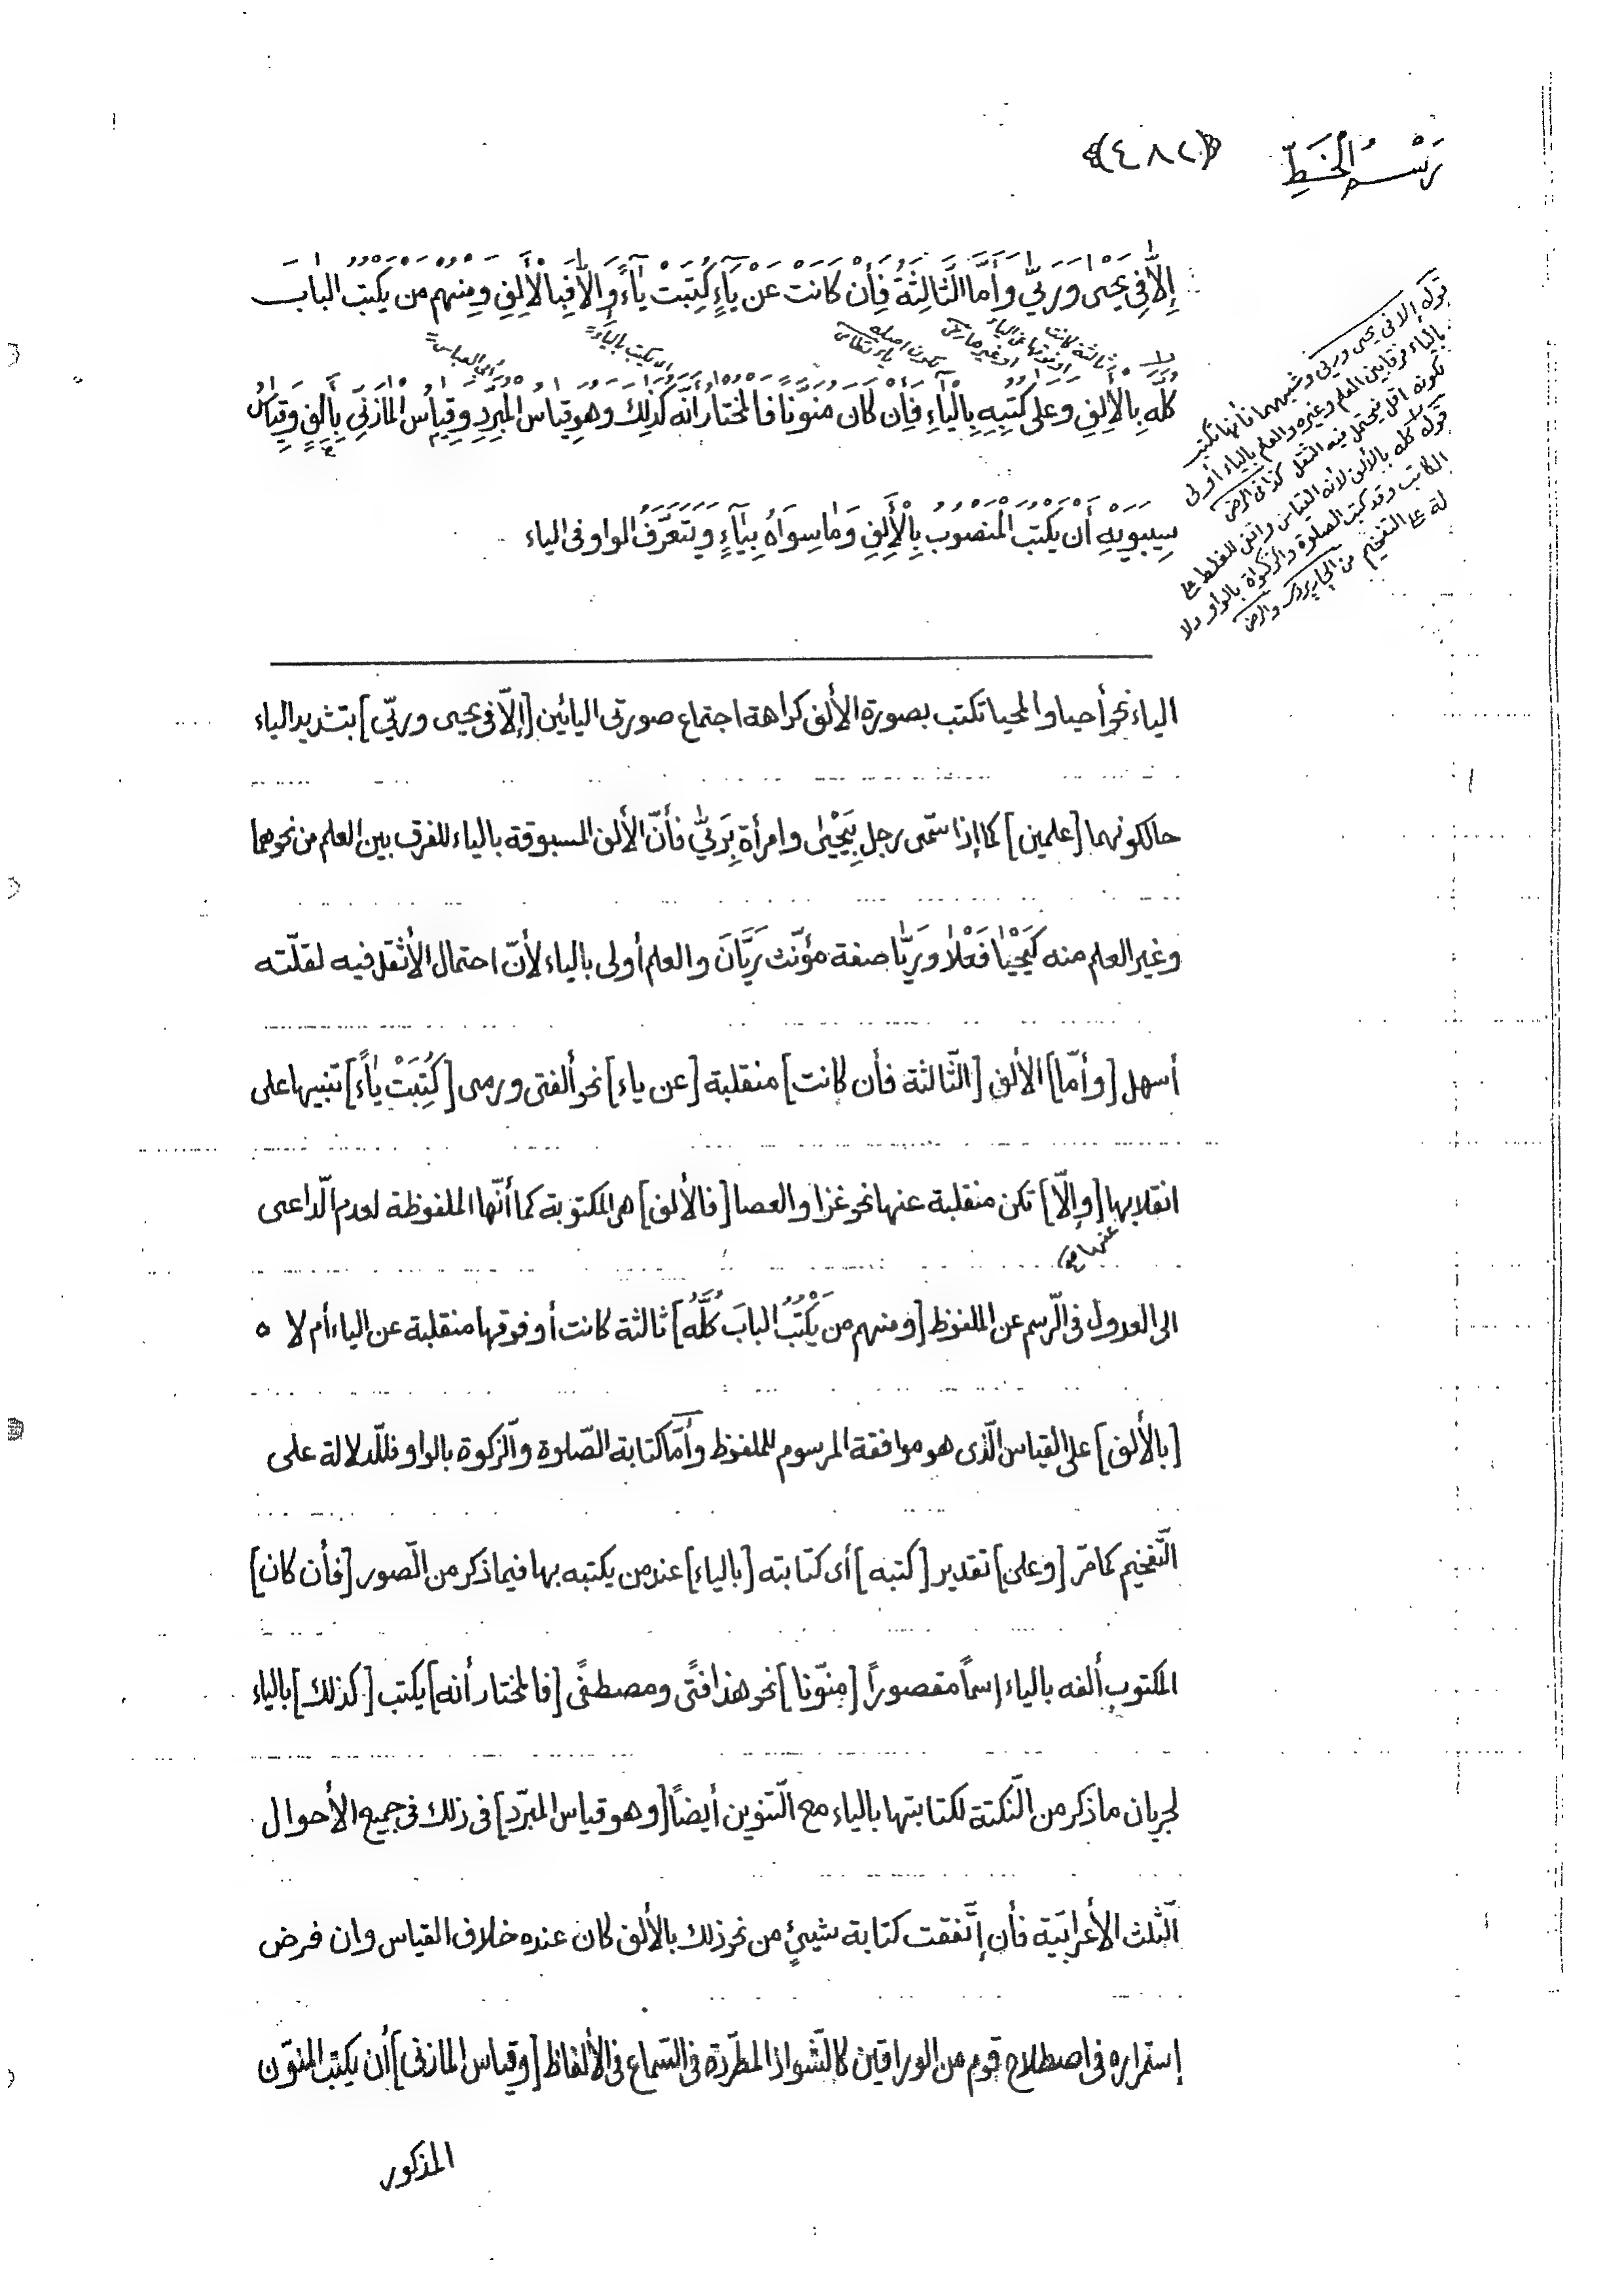 رَسْمُ الْخَطِّ ﴿٤٨٢﴾
إِلّٰا فِي يَحْيىٰ وَرَيّىٰ وَأَمَّا الثَّالِثَةُ فَأِنْ كَانَتْ عَنْ يَآءٍ كُتِبَتْ يٰآءً وَإِلّٰا فَبِالْأَلِفِ وَمِنْهُمْ مَنْ يَكْتُبُ الْبابَ
كُلَّه بِالْأَلِفِ وَعَلىٰ كَتْبِهِ بِالْيٰآءِ فَأِنْ كَانَ مُنَوَّنًا فَالمُختارُ أَنَّه كَذٰلِكَ وَهُوَ قِيٰاسُ الْمُبَرِّدِ وَقِيٰاسُ الْمٰازَنِيِّ بِأَلِفٍ وَقِيٰاسُ
سِيبَوَيْهِ أَنْ يَكْتُبَ الْمَنْصُوبُ بِالْأَلِفِ وَمٰا سِوٰاهُ بِيٰآءٍ وَيَتَعَرَّفُ الواو فى الياء
قوله إلا فى يحيى وريى وشبههما فأنها تكتب
بالياء فرقا بين العلم وغيره والعلم بالياء أولى
لكونه اقل فيحتمل فيه الثقل كذا فى الرضى
قوله كله بالألف لأنه القياس وانفى للغلط على
الكاتب وقد كتب الصلوة والزكوة بالواو دلا
لة على التفخيم من الجاربردى والرضى
ثالثة كانت
او فوقها عن الياء
او غيرها
اى يكتب بالياء
أبى العباس
الياء نحو أحيا والمحيا تكتب بصورة الألف كراهة اجتماع صورتى اليائين [إلّا فى يحيى وريّى] بتشديد الياء
حالكونهما [علمين] كما إذا سمّى رجل بِيَحْيىٰ وامرأة بِرَيّىٰ فأنّ الألف المسبوقة بالياء للفرق بين العلم من نحوهما
وغير العلم منه كَيَحْيٰا فَعْلًا وَرَيّٰا صفة مؤنّث رَيَّانَ والعلم أولى بالياء لأنّ احتمال الأثقل فيه لقلّته
أسهل [وأمّا] الألف [الثّالثة فأن كانت] منقلبة [عن ياء] نحو ألفتى ورمى [كُتِبَتْ يٰاءً] تنبيها على
انقلابها [وإلّا] تكن منقلبة عنها نحو غزا والعصا [فالألف] هى المكتوبة كما أنّها الملفوظة لعدم الّداعى
عنها
الى العدول فى الّرسم عن الملفوظ [ومنهم من يَكْتُبُ البابَ كُلَّهُ] ثالثة كانت أو فوقها منقلبة عن الياء أم لا ه
[بالألف] على القياس الّذى هو موافقة المرسوم للملفوظ وأمّا كتابة الصّلوة والّزكوة بالواو فللّدلالة على
الّتفخيم كما مرّ [وعلى] تقدير [كتبه] أى كتابته [بالياء] عند من يكتبه بها فيما ذكر من الّصور [فأن كان]
المكتوب ألفه بالياء إسماً مقصوراً [منوّنا] نحو هذا فتًى ومصطفًى [فالمختار أنه] يكتب [كذلك] بالياء
لجريان ما ذكر من الّنكتة لكتابتها بالياء مع الّتنوين أيضاً [وهو قياس المبرّد] فى ذلك فى جميع الأحوال
الّثلث الأعرابّية فأن إتّفقت كتابة شيئٍ من نحو ذلك بالألف كان عنده خلاف القياس وان فرض
إستمراره فى اصطلاح قوم من الوراقين كالّشواذ المطّردة فى السّماع فى الألفاظ [وقياس المازنى] أن يكتب المنوّن
المذكور